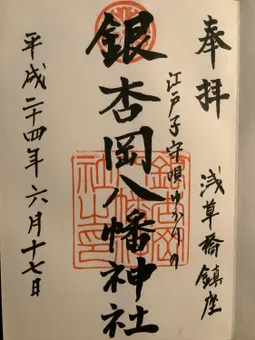 奉拝
浅草橋鎮座
江戸子守唄ゆかりの
銀杏岡八幡神社
平成二十四年六月十七日